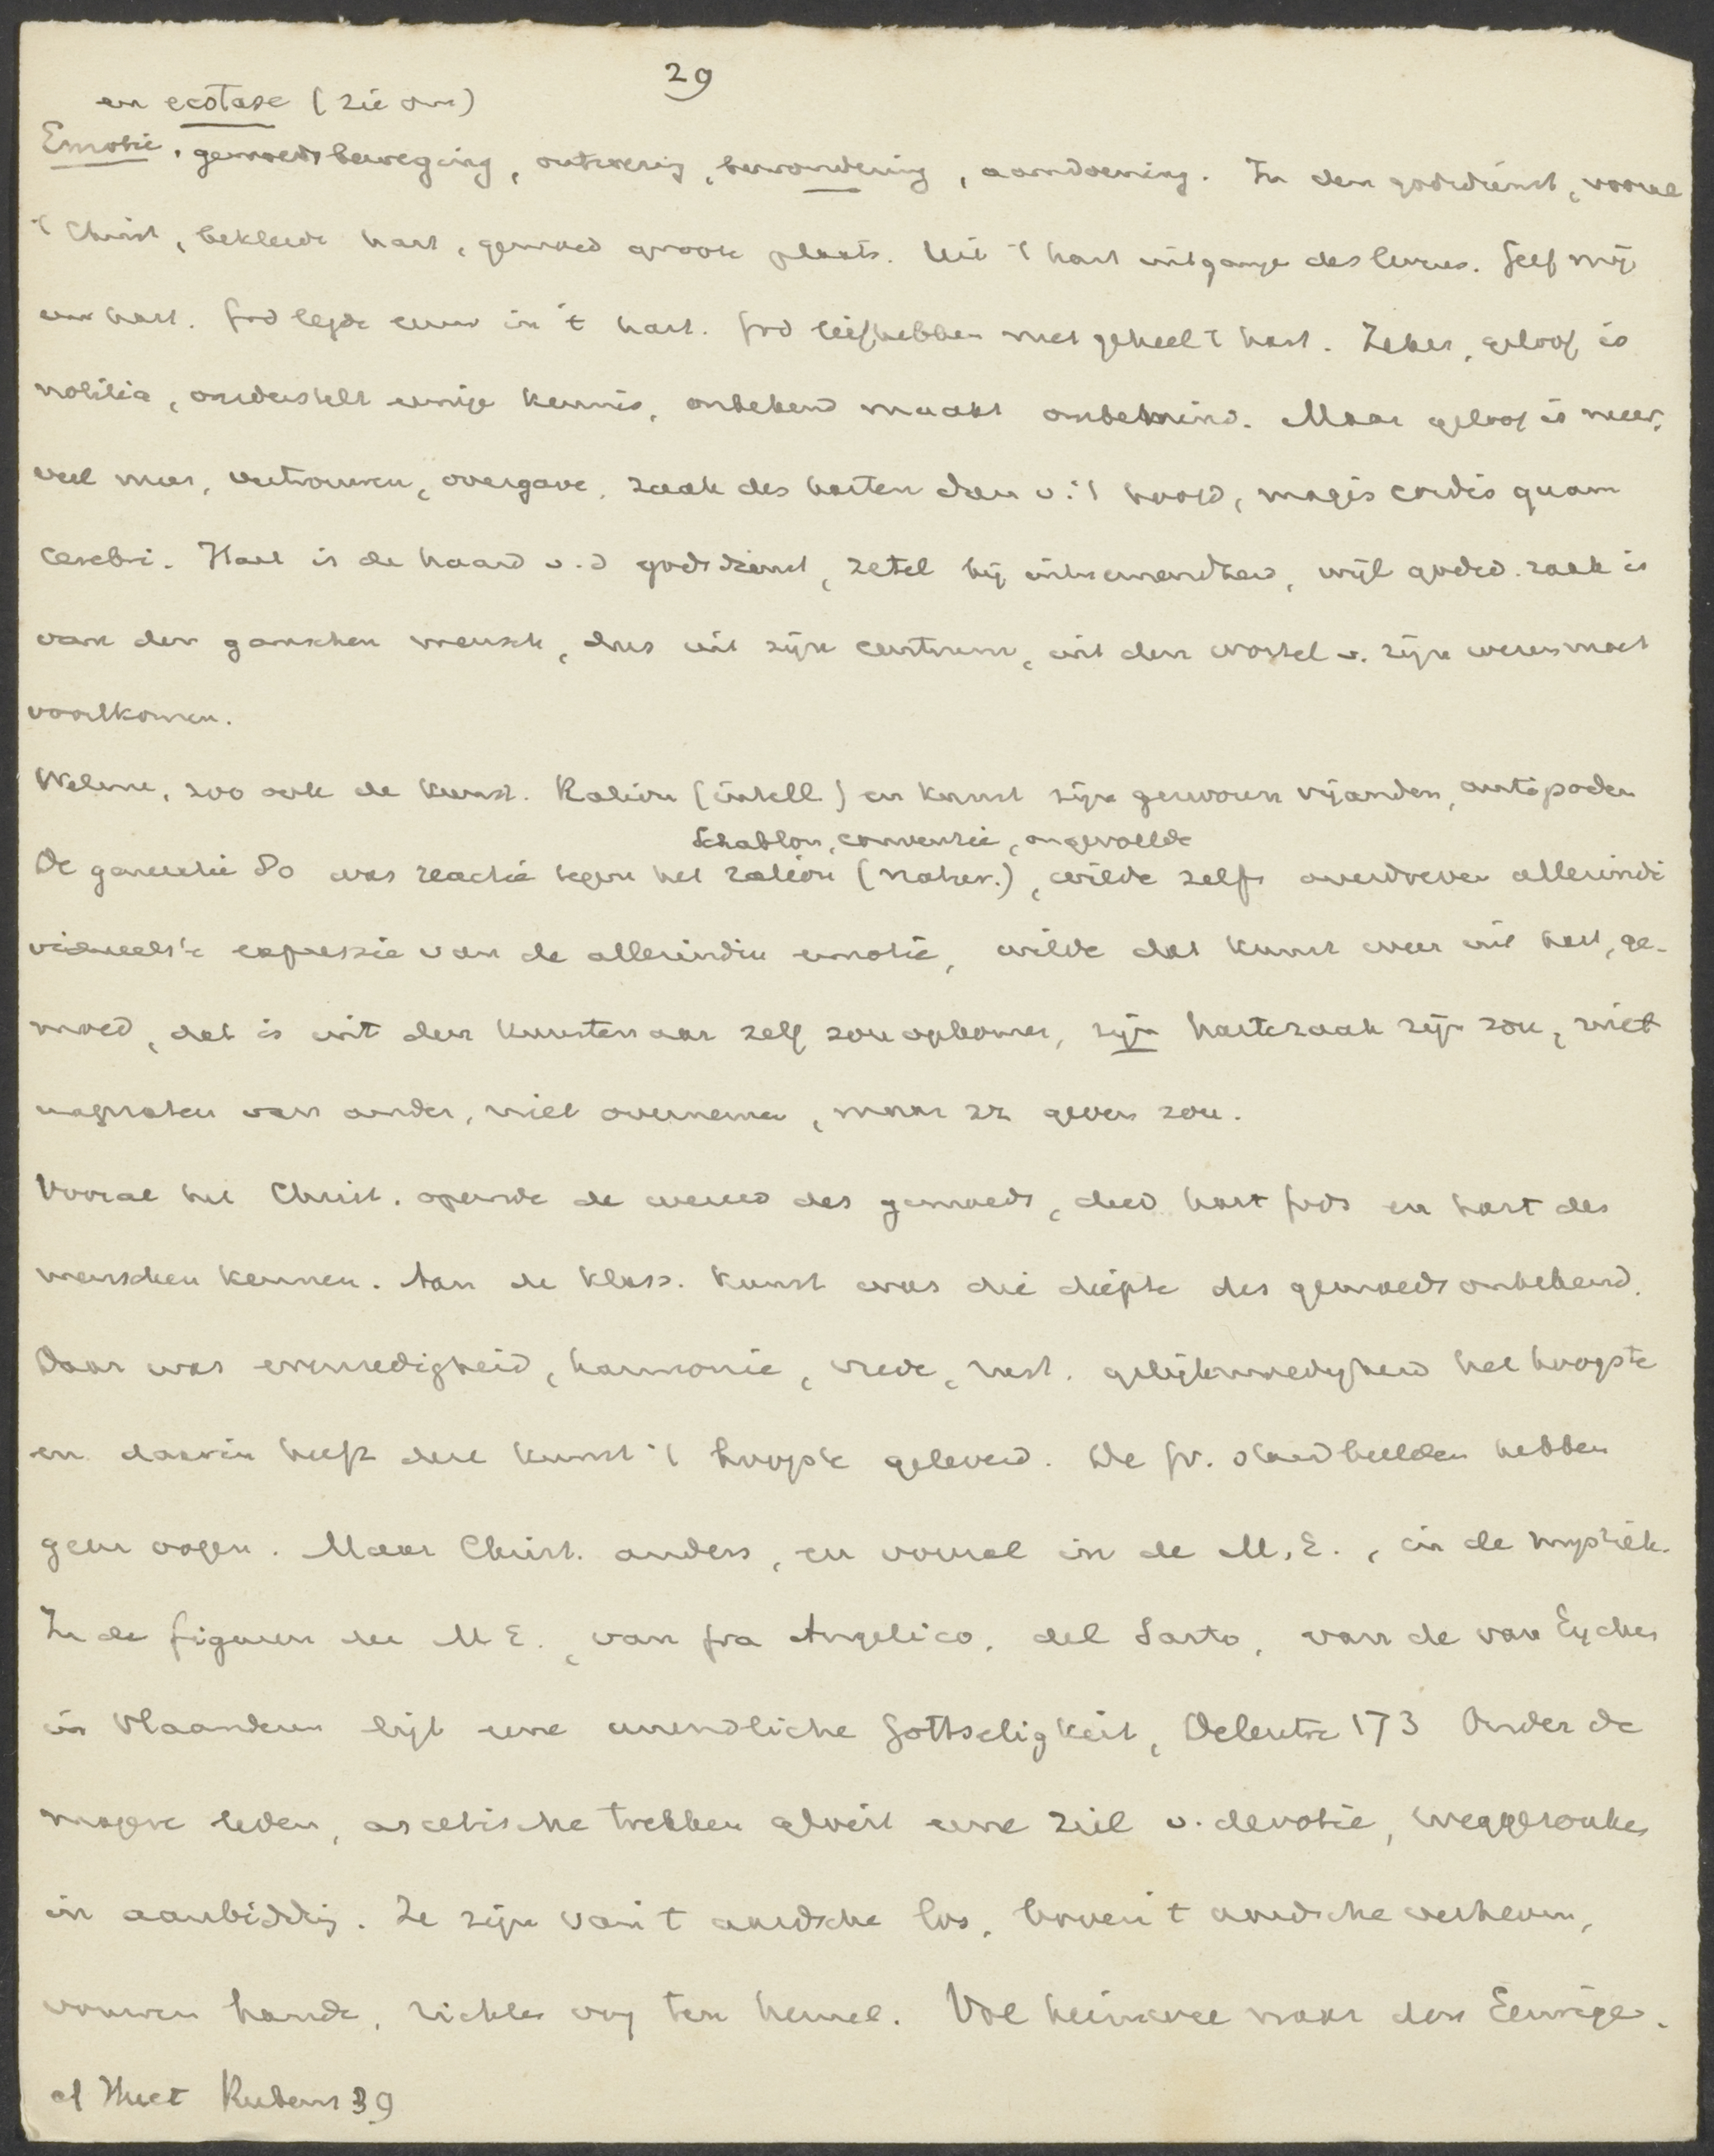 29
en ecstase (zie om)
Emotie. gemoedsbeweging, ontroering, bewondering, aandoening. In den godsdienst, vooral
't Christ, bekleedt hart, gemoed groote plaats. Uit 't hart uitgangen des levens. Geef mij
uw hart. God legde eeuw in 't hart. God liefhebben met geheel 't hart. Zeker, geloof is
notitia, onderstelt eenige kennis, onbekend maakt onbemind. Maar geloof is meer,
veel meer, vertrouwen, overgave, zaak des harten dan v. 't hoofd, magis cordis quam
cerebri. Hart is de haard v.d godsdienst, zetel bij uitnemendheid, wijl godsd. zaak is
van den ganschen mensch, dus uit zijn centrum, uit den wortel v. zijn wezen moet
voortkomen.
Welnu, zoo ook de kunst. Ration (intell.) en kunst zijn gezworen vijanden, antipoden
Schablon, conventie, ongevoelde
De generatie 80 was reactie tegen het ration (natur.), wilde zelfs overdreven allerindi
vidueelste expressie van de allerindiv emotie, wilde dat kunst weer uit hart, ge-
moed, dat is uit den kunstenaar zelf zou opkomen, zijn hartezaak zijn zou, niet
napraten van ander, niet overnemen, maar zz geven zou.
Vooral het Christ. opende de wereld des gemoeds, deed hart Gods en hart des
menschen kennen. Aan de klass. kunst was die diepte des gemoeds onbekend.
Daar was evenredigheid, harmonie, vrede, rust. gelijkmoedigheid het hoogste
en daarin heeft die kunst 't hoogste geleverd. De Gr. standbeelden hebben
geen oogen. Maar Christ. anders, en vooral in de M.E., in de mystiek.
In de figuren der M E., van fra Angelico, del Sarto, van de van Eycken
in Vlaanderen ligt eene unendliche Gottseligkeit, 173 Onder de
magere leden, ascetische trekken gloeit eene ziel v. devotie, weggezonken
in aanbidding. Ze zijn van 't aardsche los, boven 't aardsche verheven,
vouwen hande, richten oog ten hemel. Vol heimwee naar den Eeuwige.
cf Huet Rubens 39